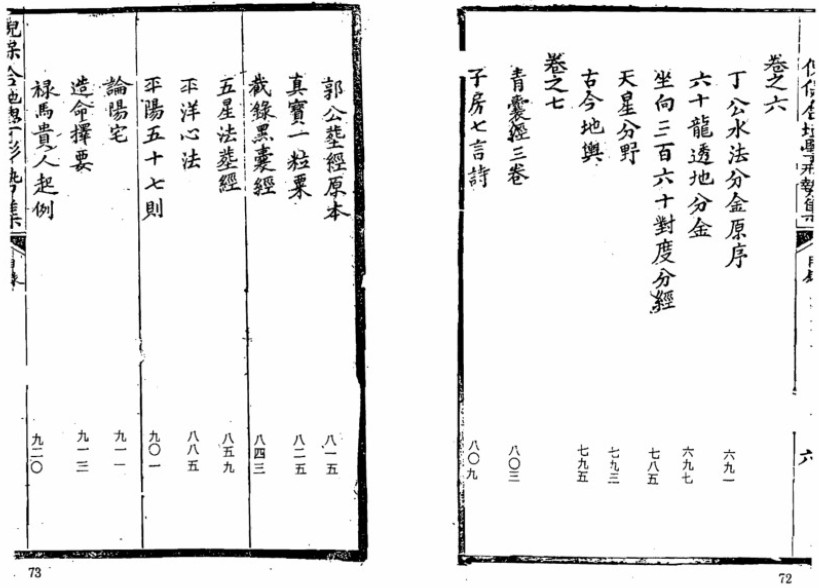 卷之六
丁公水法分金原序 六九一
六十龍透地分金 六九七
坐向三百六十對度分經 七八五
天星分野 七九三
古今地輿 七九五
卷之七
青囊經三卷 八〇三
子房七言詩 八〇九
目錄
六
72
郭公塟經原本 八一五
真寶一粒粟 八二五
截錄黑囊經 八四三
五星法塟經 八五九
平洋心法 八八五
平陽五十七則 九〇一
論陽宅 九一一
造命擇要 九一三
禄馬貴人起例 九二〇
目錄
73